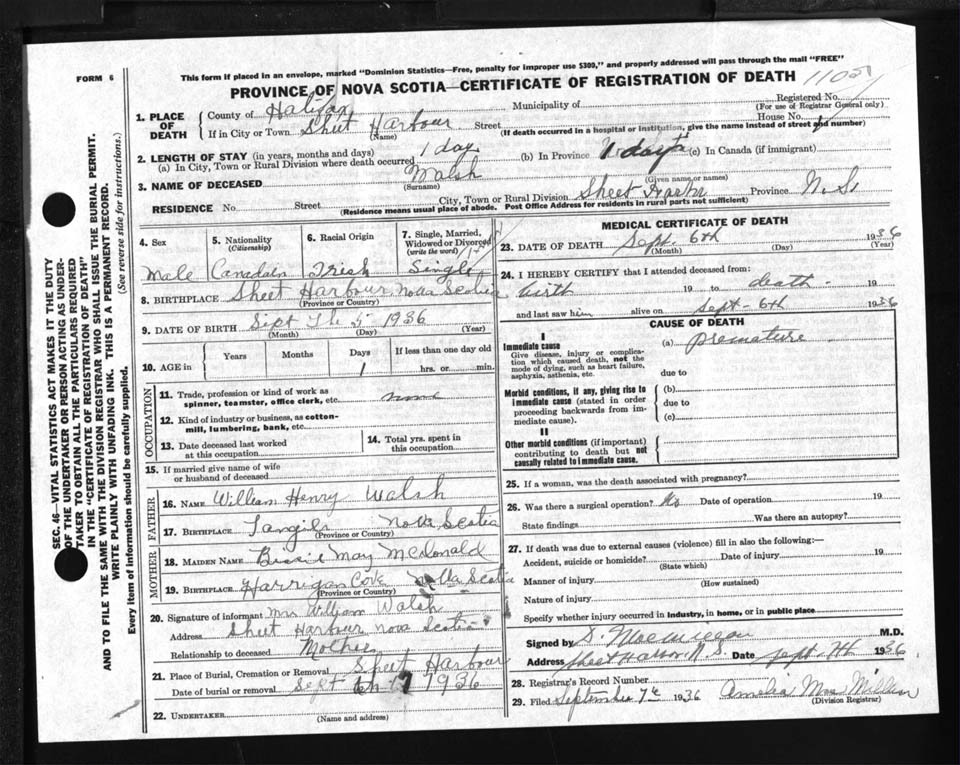 FORM 6
This form if placed in an envelope, marked "Dominion Statistics—Free, penalty for improper use $300," and properly addressed will pass through the mail "FREE"
PROVINCE OF NOVA SCOTIA—CERTIFICATE OF REGISTRATION OF DEATH
Registered No.
(For use of Registrar General only)
1. PLACE OF DEATH
County of Halifax
Municipality of
If in City or Town Sheet Harbour Street House No.
(Name) (If death occurred in a hospital or institution, give the name instead of street and number)
2. LENGTH OF STAY (in years, months and days)
(a) In City, Town or Rural Division where death occurred 1 day (b) In Province 1 day (c) In Canada (if immigrant)
3. NAME OF DECEASED Walsh
(Surname) (Given name or names)
RESIDENCE No. Street City, Town or Rural Division Sheet Harbor Province N.S.
(Residence means usual place of abode. Post Office Address for residents in rural parts not sufficient)
4. Sex Male
5. Nationality (Citizenship) Canadain
6. Racial Origin Irish
7. Single, Married, Widowed or Divorced (write the word) Single
8. BIRTHPLACE Sheet Harbour Nova Scotia
(Province or Country)
9. DATE OF BIRTH Sept The 5 1936
(Month) (Day) (Year)
10. AGE in
Years Months Days If less than one day old
1 hrs. or min.
OCCUPATION
11. Trade, profession or kind of work as spinner, teamster, office clerk, etc. none
12. Kind of industry or business, as cotton-mill, lumbering, bank, etc.
13. Date deceased last worked at this occupation
14. Total yrs. spent in this occupation
15. If married give name of wife or husband of deceased
FATHER
16. NAME William Henry Walsh
17. BIRTHPLACE Tangier Nova Scotia
(Province or Country)
MOTHER
18. MAIDEN NAME Bessie May McDonald
19. BIRTHPLACE Harrigan Cove Nova Scotia
(Province or Country)
20. Signature of informant Mrs William Walsh
Address Sheet Harbour Nova Scotia
Relationship to deceased Mother
21. Place of Burial, Cremation or Removal Sheet Harbour
Date of burial or removal Sept 7 1936
22. UNDERTAKER
(Name and address)
MEDICAL CERTIFICATE OF DEATH
23. DATE OF DEATH Sept. 6th 1936
(Month) (Day) (Year)
24. I HEREBY CERTIFY that I attended deceased from:
birth 19 to death 19
and last saw him alive on Sept- 6th 1936
CAUSE OF DEATH
I
Immediate cause
Give disease, injury or complication which caused death, not the mode of dying, such as heart failure, asphyxia, asthenia, etc.
(a) premature
due to
Morbid conditions, if any, giving rise to immediate cause (stated in order proceeding backwards from immediate cause).
(b)
due to
(c)
II
Other morbid conditions (if important) contributing to death but not causally related to immediate cause.
25. If a woman, was the death associated with pregnancy?
26. Was there a surgical operation? No Date of operation 19
State findings Was there an autopsy?
27. If death was due to external causes (violence) fill in also the following:—
Accident, suicide or homicide? Date of injury 19
(State which)
Manner of injury
(How sustained)
Nature of injury
Specify whether injury occurred in industry, in home, or in public place
Signed by M.D.
Address Sheet Harbor N.S. Date Sept. 7th 1936
28. Registrar's Record Number
29. Filed September 7th 1936 Amelia MacMillan
(Division Registrar)
SEC. 46—VITAL STATISTICS ACT MAKES IT THE DUTY
OF THE UNDERTAKER OR PERSON ACTING AS UNDERTAKER TO OBTAIN ALL THE PARTICULARS REQUIRED
IN THE "CERTIFICATE OF REGISTRATION OF DEATH"
AND TO FILE THE SAME WITH THE DIVISION REGISTRAR WHO SHALL ISSUE THE BURIAL PERMIT.
WRITE PLAINLY WITH UNFADING INK. THIS IS A PERMANENT RECORD.
Every item of information should be carefully supplied. (See reverse side for instructions.)